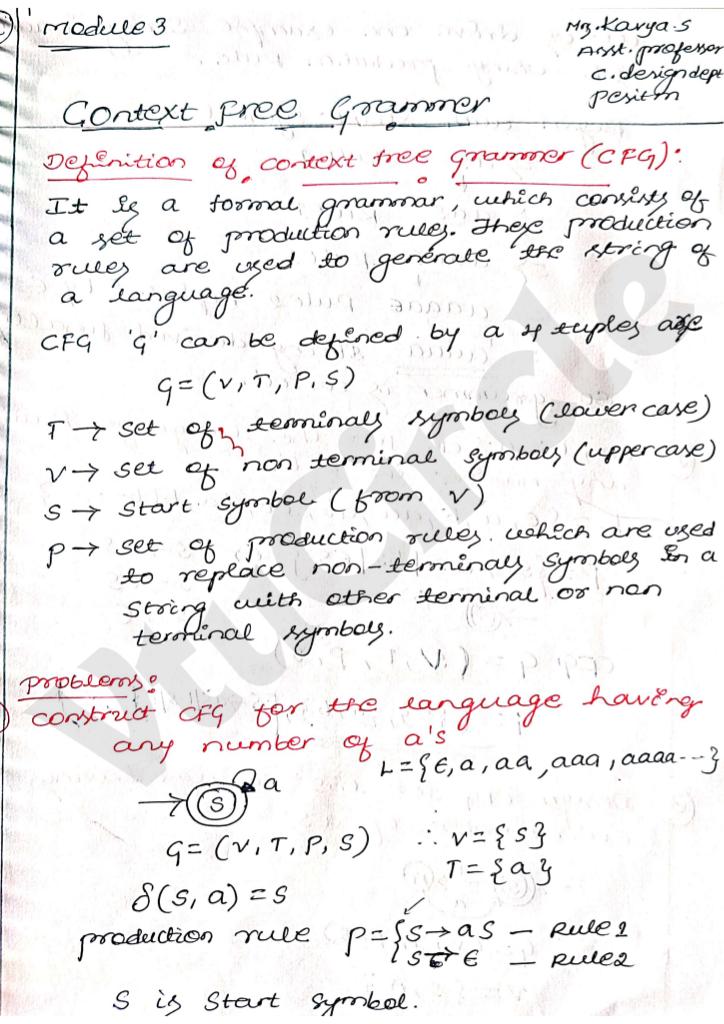 Module 3
Ms. Kavya.S
Asst. professor
C. design dept
pesitm
Context Free Grammer
Definition of context free grammer (CFG):
It is a formal grammar, which consists of
a set of production rules. These production
rules are used to generate the string of
a language.
CFG 'G' can be defined by a 4 tuples are
G = (V, T, P, S)
T → set of terminals symbols (lower case)
V → set of non terminal symbols (uppercase)
S → Start symbol (from V)
P → set of production rules. which are used
to replace non-terminals symbols in a
string with other terminal or non
terminal symbols.
Problems:
construct CFG for the language having
any number of a's
L = {ϵ, a, aa, aaa, aaaa---}
a
S
G = (V, T, P, S) ∴ V = {S}
T = {a}
δ(S, a) = S
production rule P = {S → aS — Rule 1
S → ϵ — Rule 2
S is Start Symbol.
VtuCircle